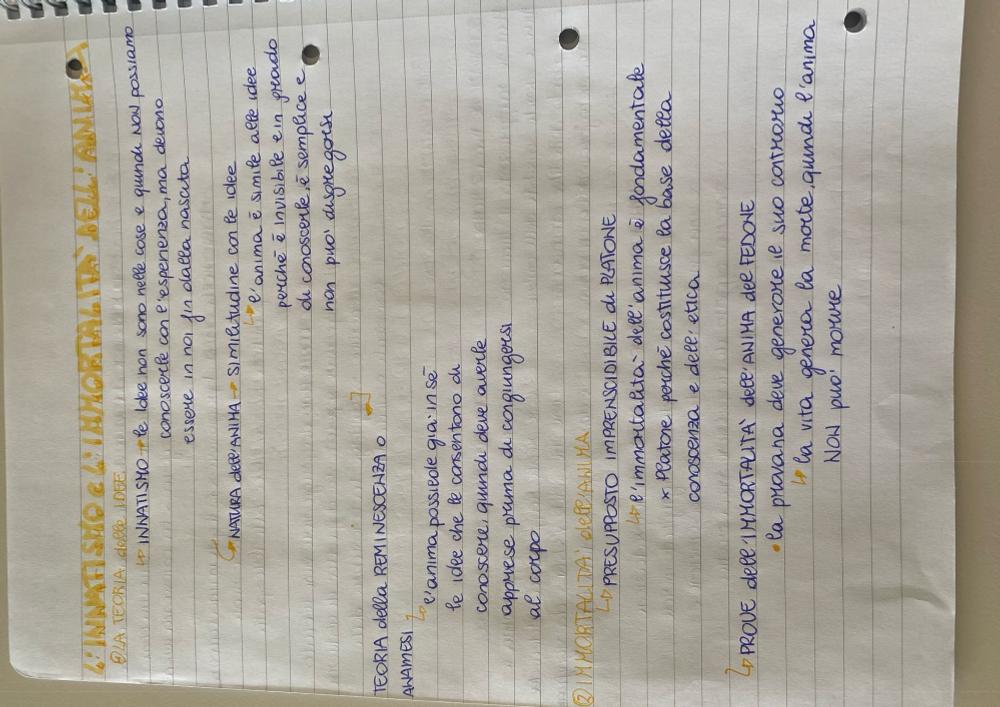 L'INNATISMO e L'IMMORTALITA' DELL'ANIMA
① LA TEORIA delle IDEE
↳ INNATISMO → le Idee non sono nelle cose e quindi NON possiamo
conoscerle con l'esperienza, ma devono
essere in noi fin dalla nascita
↳ NATURA dell'ANIMA → SIMILITUDINE con le idee
↳ l'anima è simile alle idee
perché è invisibile e in grado
di conoscerle, è semplice e
non può disgregarsi
TEORIA della REMINESCENZA o
ANAMESI
↳ l'anima possiede già in sé
le idee che le consentono di
conoscere, quindi deve averle
apprese prima di congiungersi
al corpo
② IMMORTALITA' dell'ANIMA
↳ PRESUPPOSTO IMPRENSCIDIBILE di PLATONE
↳ l'immortalità dell'anima è fondamentale
x Platone perché costituisce la base della
conoscenza e dell'etica
↳ PROVE dell'IMMORTALITÀ dell'ANIMA del FEDONE
• la prova na deve generare il suo contrario
↳ la vita genera la morte, quindi l'anima
NON può morire